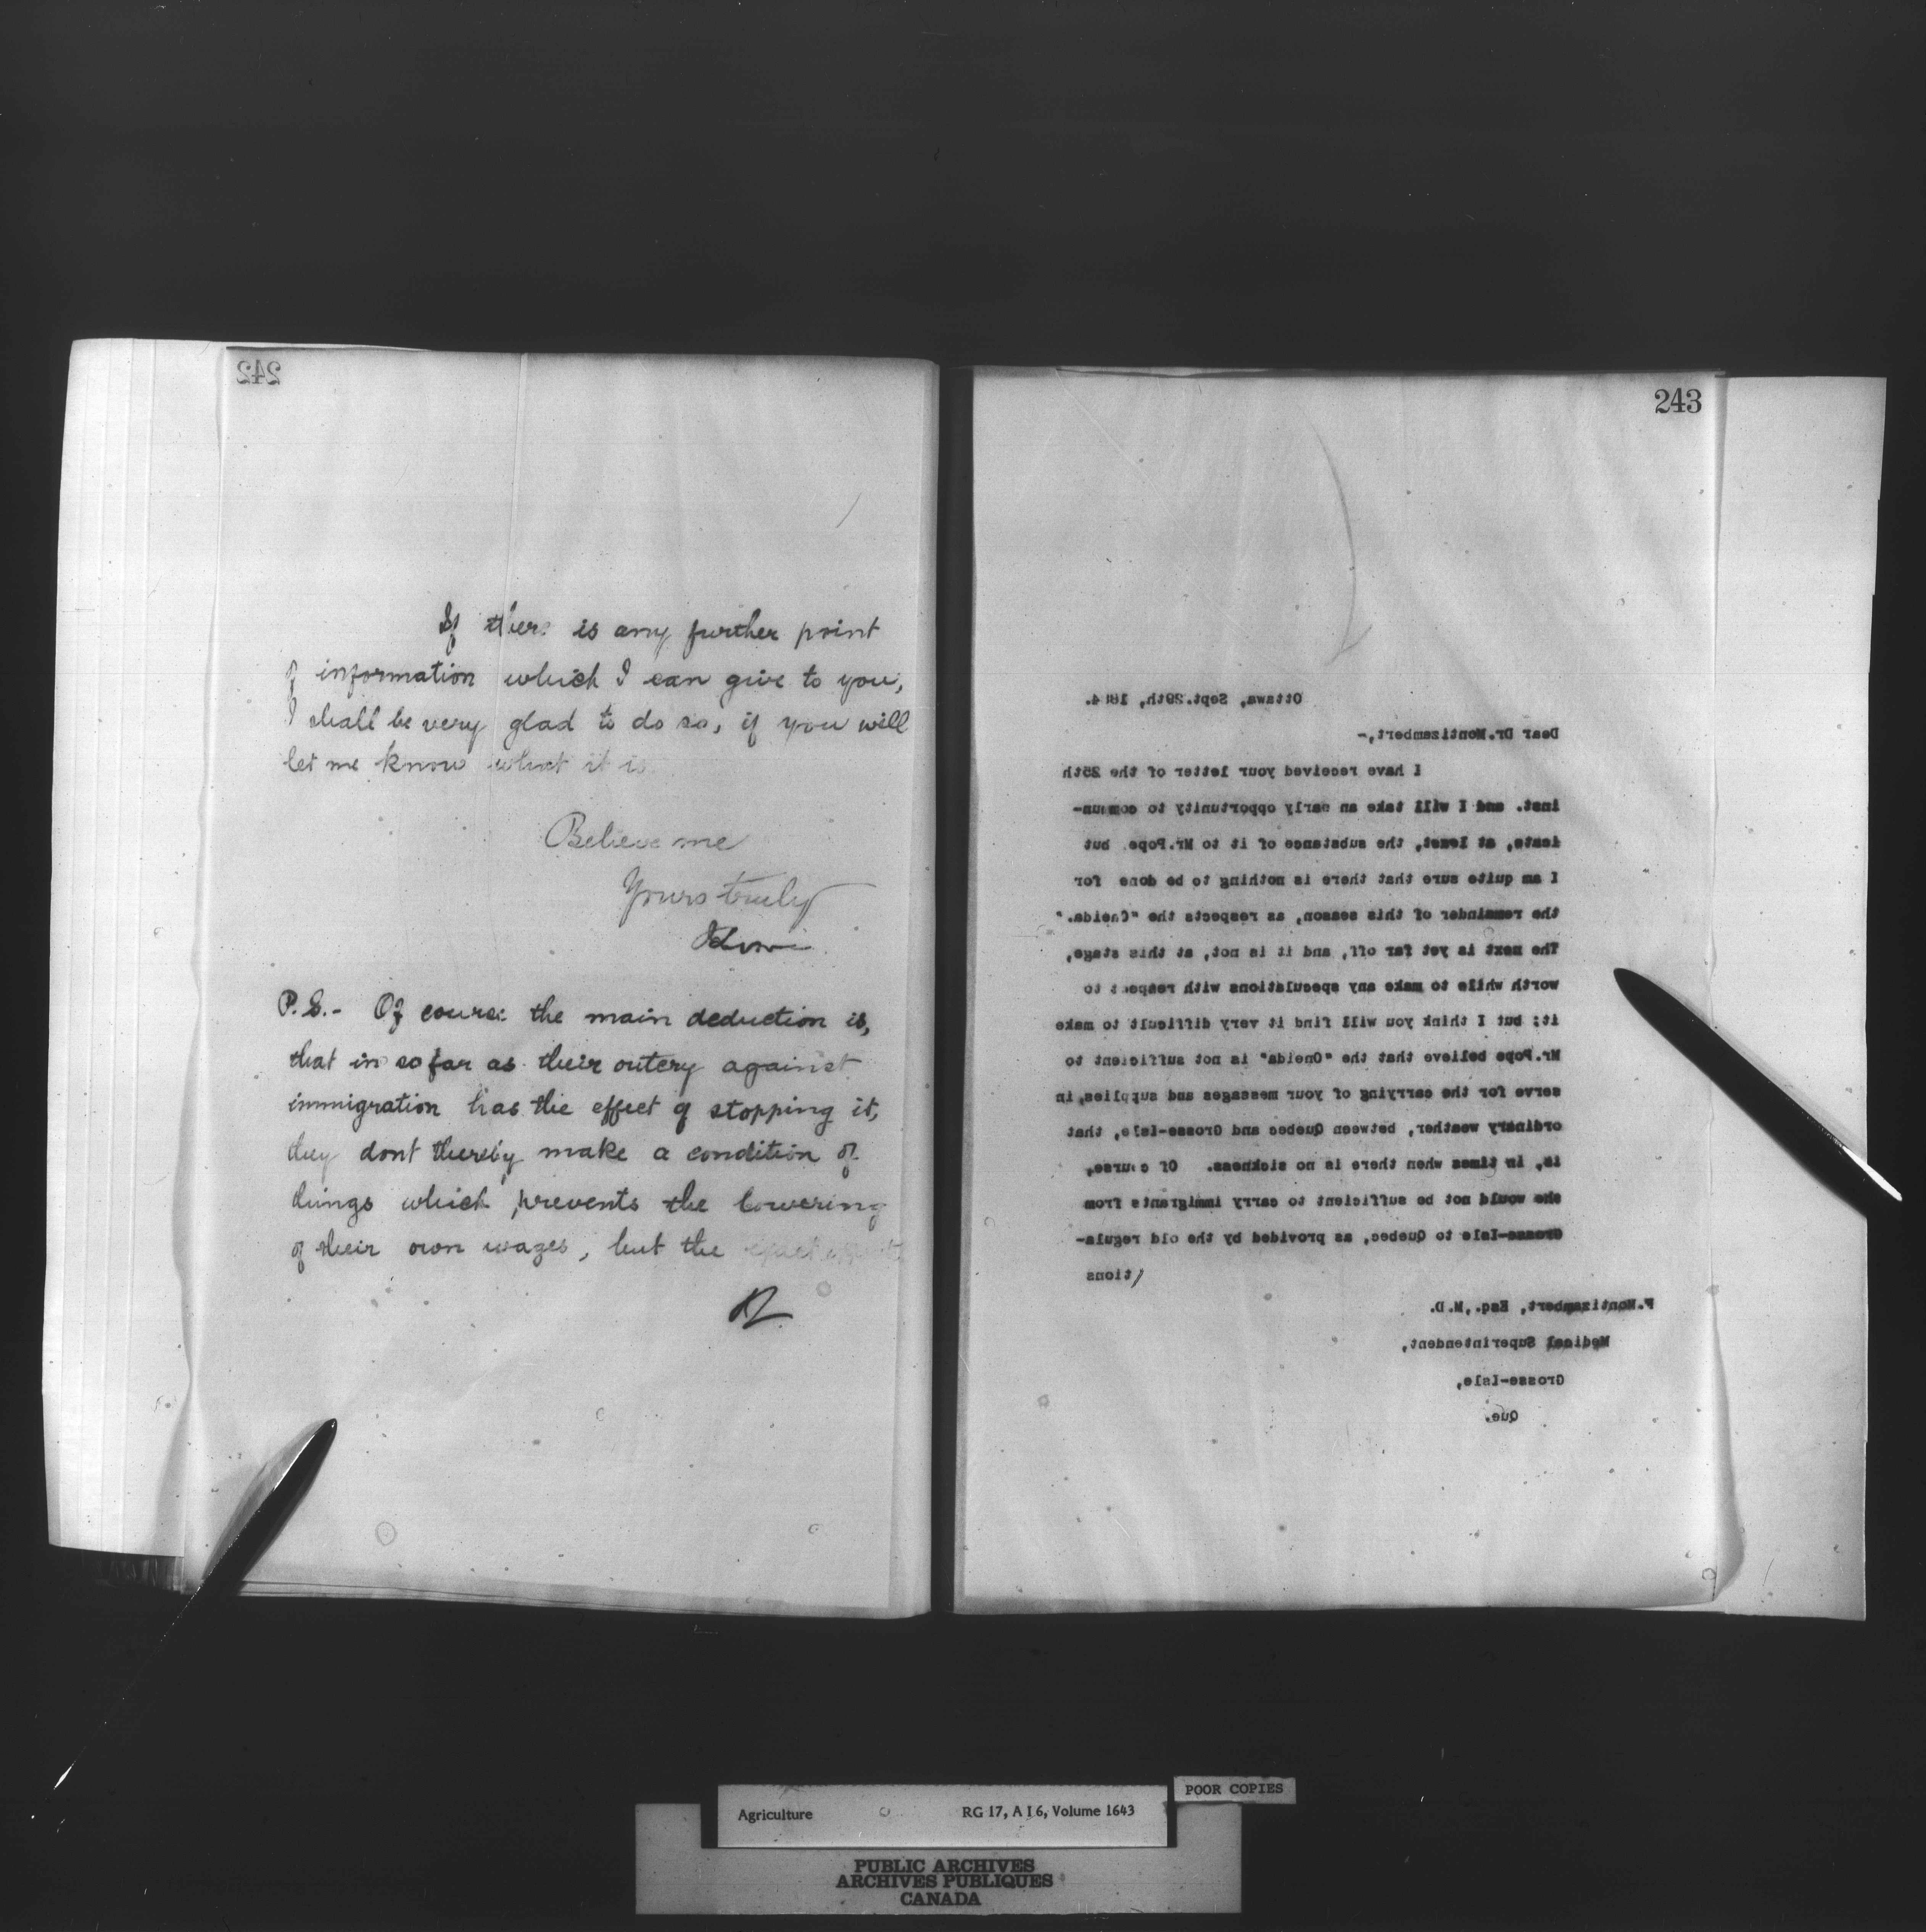 242
If there is any further point
of information which I can give to you,
I shall be very glad to do so, if you will
let me know what it is
Believe me
Yours truly
P.S.- Of course the main deduction is,
that in so far as their outcry against
immigration has the effect of stopping it,
they dont thereby make a condition of
things which prevents the lowering
of their own wages, but the
243
Ottawa, Sept.29th, 1884.
Dear Dr.Montizambert,-
I have received your letter of the 25th
inst. and I will take an early opportunity to commun-
icate, at least, the substance of it to Mr.Pope, but
I am quite sure that there is nothing to be done for
the remainder of this season, as respects the "Oneida."
The next is yet far off, and it is not, at this stage,
worth while to make any speculations with respect to
it; but I think you will find it very difficult to make
Mr.Pope believe that the "Oneida" is not sufficient to
serve for the carrying of your messages and supplies,in
ordinary weather, between Quebec and Grosse-Isle, that
is, in times when there is no sickness. Of course,
she would not be sufficient to carry immigrants from
Grosse-Isle to Quebec, as provided by the old regula-
/tions
F.Montizambert, Esq.,M.D.
Medical Superintendent,
Grosse-Isle,
Que.
POOR COPIES
Agriculture RG 17, A I 6, Volume 1643
PUBLIC ARCHIVES
ARCHIVES PUBLIQUES
CANADA